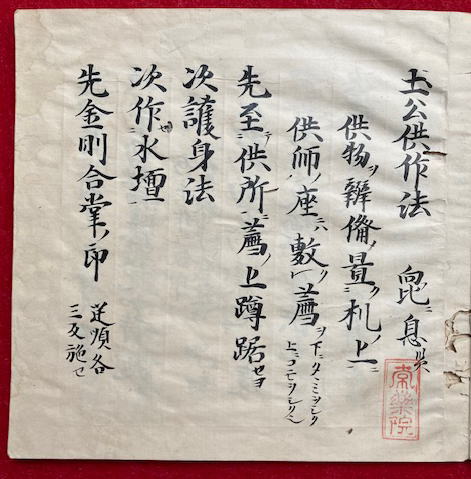 土公供作法　
供物ヲ辨備ノ置ク机ノ上ニ
供師ノ座ニハ敷ク薦ヲ下ニタヽミヲシク
上ニコモヲシクヘシ
先至テ供所ニ薦ノ上蹲踞セヨ
次護身法
次作水壇
先金剛合掌ノ印 逆順各
三反施セ
常樂院